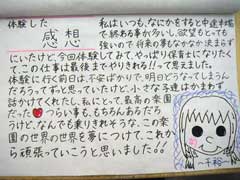 体験した
感想
私はいつも、なにかをすると中途半端
で終わる事が多いし、欲望もとっても
強いので、将来の夢もなかなか決まらず
にいたけど、今回体験してみて、やっぱり保育士になりたく
て、この仕事は最後までやりきれる!!って思えました。
体験に行く前日は、不安ばかりで、明日どうなってしまうん
だろうってずっと思っていたけど、小さな子達はかまわず
話かけてくれたし、私にとって、最高の楽園
だった♥つらい事も、もちろんあるだろ
うけど、なんでも乗りきれそうな、この楽
園の世界の世界を夢につけて、これか
ら頑張っていこうと思いました!!
〜千裕〜